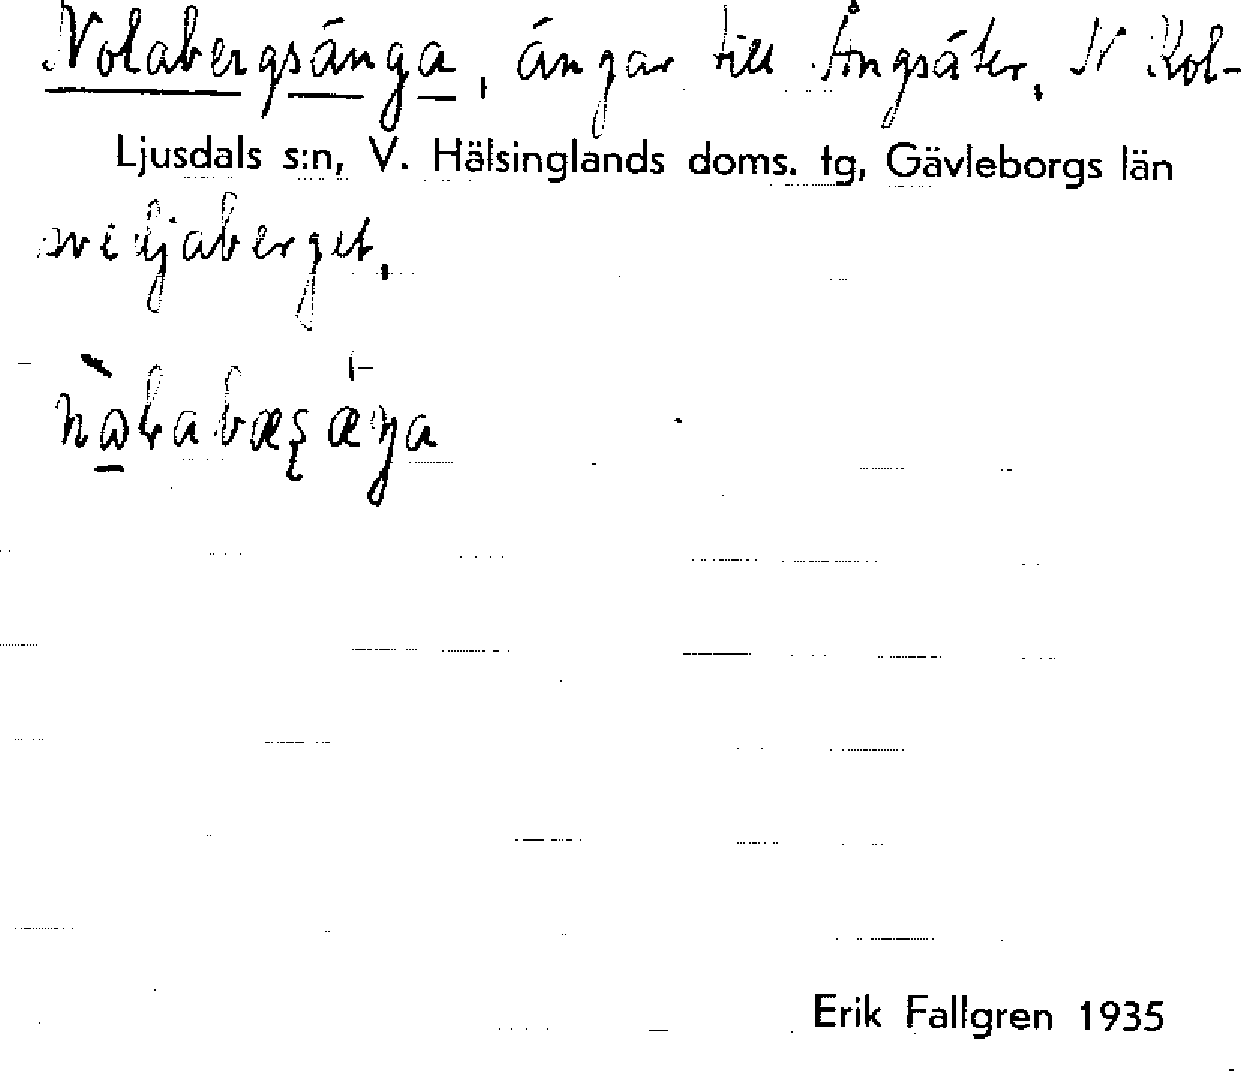 Nolabergsänga, ängar till Ångsäter, N Kol-
Ljusdals s:n, V. Hälsinglands doms. tg, Gävleborgs län
sveljaberget.
Erik Fallgren 1935